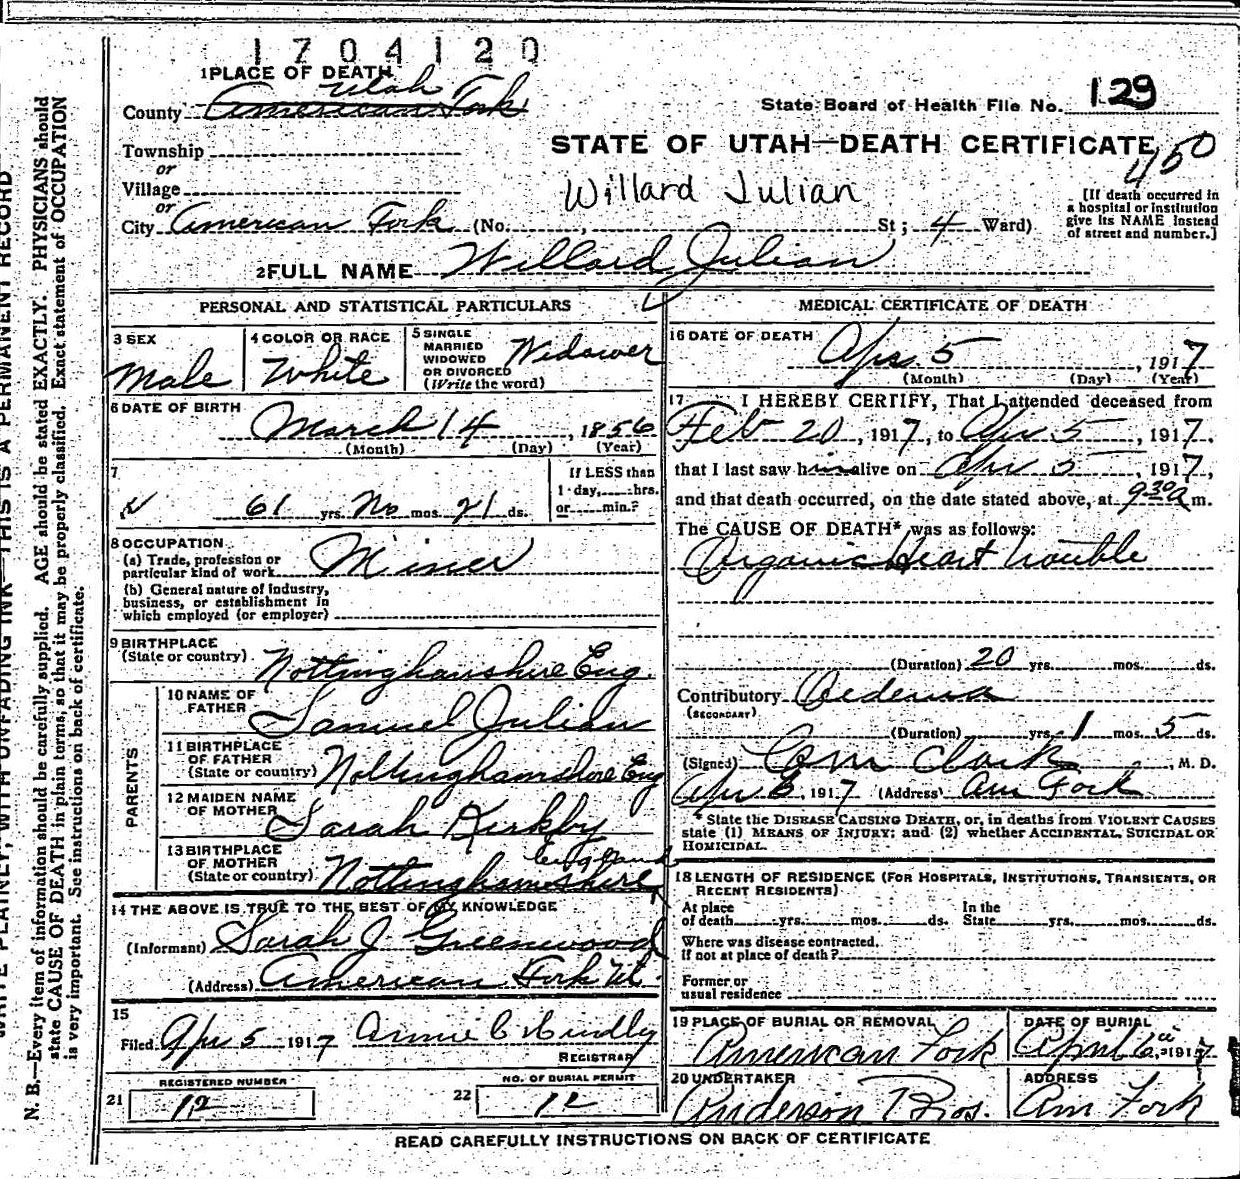 1704120
1 PLACE OF DEATH
Utah
County American Fork
State Board of Health File No. 129
STATE OF UTAH—DEATH CERTIFICATE
450
Township
or
Village
or
Willard Julian
[If death occurred in
a hospital or institution
give its NAME instead
of street and number.]
City American Fork (No. , St; 4 Ward)
2 FULL NAME Willard Julian
PERSONAL AND STATISTICAL PARTICULARS
3 SEX
Male
4 COLOR OR RACE
White
5 SINGLE
MARRIED
WIDOWED
OR DIVORCED
(Write the word)
Widower
6 DATE OF BIRTH
March 14, 1856
(Month) (Day) (Year)
7
61 yrs. No mos. 21 ds.
If LESS than
1 day, hrs.
or min.?
8 OCCUPATION
(a) Trade, profession or
particular kind of work Miner
(b) General nature of industry,
business, or establishment in
which employed (or employer)
9 BIRTHPLACE
(State or country) Nottinghamshire Eng.
PARENTS
10 NAME OF
FATHER Samuel Julian
11 BIRTHPLACE
OF FATHER
(State or country) Nottinghamshire Eng
12 MAIDEN NAME
OF MOTHER Sarah Kirkby
13 BIRTHPLACE
OF MOTHER England
(State or country) Nottinghamshire
14 THE ABOVE IS TRUE TO THE BEST OF MY KNOWLEDGE
(Informant) Sarah J Greenwood
(Address) American Fork Ut.
15
Filed Apr 5 1917 Annie C Hindley
REGISTRAR
REGISTERED NUMBER
21 12
NO. OF BURIAL PERMIT
22 12
MEDICAL CERTIFICATE OF DEATH
16 DATE OF DEATH
Apr. 5, 1917
(Month) (Day) (Year)
17 I HEREBY CERTIFY, That I attended deceased from
Feb 20, 1917, to Apr 5, 1917.
that I last saw him alive on Apr 5, 1917,
and that death occurred, on the date stated above, at 9 30 a m.
The CAUSE OF DEATH* was as follows:
Organic Heart trouble
(Duration) 20 yrs. mos. ds.
Contributory Oedema
(SECONDARY)
(Duration) yrs. 1 mos. 5 ds.
(Signed) Clark, M. D.
Apr 6, 1917 (Address) Am Fork
* State the DISEASE CAUSING DEATH, or, in deaths from VIOLENT CAUSES
state (1) MEANS OF INJURY; and (2) whether ACCIDENTAL, SUICIDAL OR
HOMICIDAL.
18 LENGTH OF RESIDENCE (FOR HOSPITALS, INSTITUTIONS, TRANSIENTS, OR
RECENT RESIDENTS)
At place
of death yrs. mos. ds.
In the
State yrs. mos. ds.
Where was disease contracted.
if not at place of death?
Former or
usual residence
19 PLACE OF BURIAL OR REMOVAL
American Fork
DATE OF BURIAL
April 6, 1917
20 UNDERTAKER
Anderson Bros.
ADDRESS
Am Fork
READ CAREFULLY INSTRUCTIONS ON BACK OF CERTIFICATE
WRITE PLAINLY, WITH UNFADING INK—THIS IS A PERMANENT RECORD
N. B.—Every item of information should be carefully supplied. AGE should be stated EXACTLY. PHYSICIANS should
state CAUSE OF DEATH in plain terms, so that it may be properly classified. Exact statement of OCCUPATION
is very important. See instructions on back of certificate.